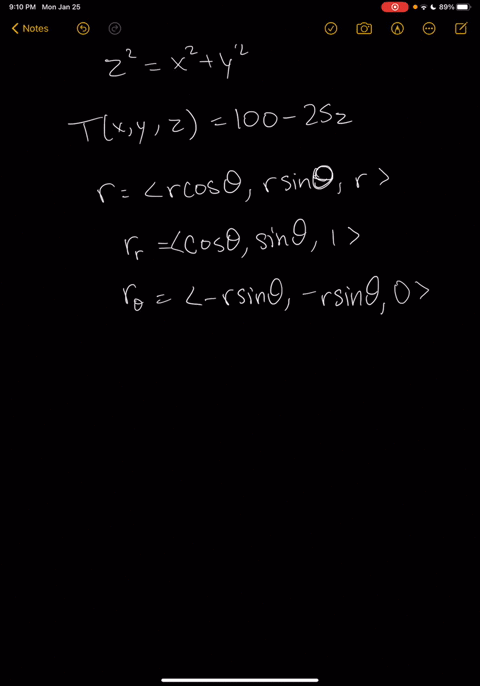 9:10 PM Mon Jan 25
89%
Notes
z² = x² + y²
T(x, y, z) = 100 - 25z
r = <rcosθ, rsinθ, r>
r_r = <cosθ, sinθ, 1>
r_θ = <-rsinθ, -rsinθ, 0>